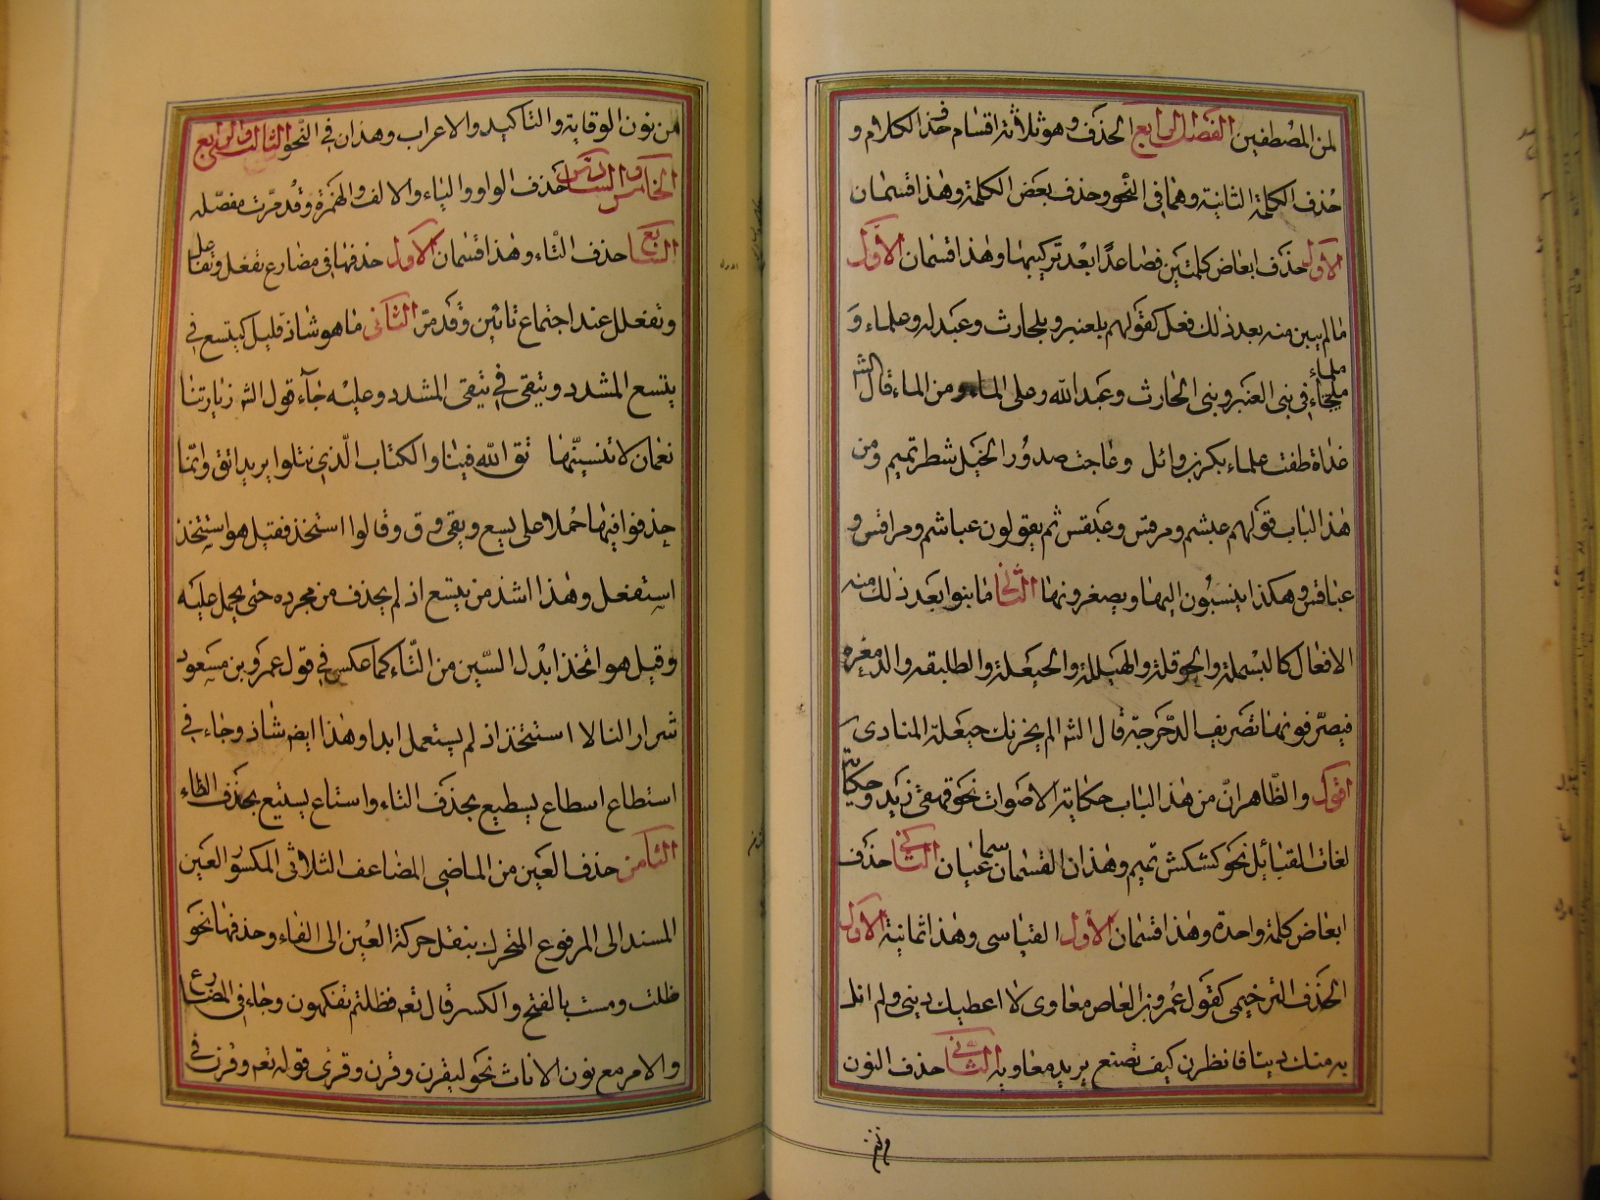 لمن المصطفين الفصل الرابع الحذف وهو ثلاثة اقسام حذف الكلام و
حذف الكلمة الثانية وهما في النحو وحذف بعض الكلمة وهذا قسمان
الاول حذف ابعاض كلمتين فصاعدًا بعد تركيبها وهذا قسمان الاول
ما لم يبين منه بعد ذلك فعل كقولهم بلعنبر وبلحارث وعبدله وعلماء و
ملماء في بني العنبر وبني الحارث وعبد الله وعلى الماء ومن الماء قال الشه
غداة طفت علماء بكر بن وائل وعاجت صدور الخيل شطر تميم ومن
هذا الباب قولهم عبشم ومرقس وعبقس ثم يقولون عباشم ومراقس و
عباقس وهكذا ينسبون اليها ويصغرونها الثاني ما بنوا بعد ذلك منه
الافعال كالبسملة والحوقلة والهيللة والحيعلة والطلبقه والدمعزه
فيصرفونها تصريف الدحرجة قال الشه الم يحزنك حيعلة المنادى
اقول والظاهر ان من هذا الباب حكاية الاصوات نحو قهقى زيد وحكاية
لغات القبائل نحو كشكش تميم وهذان القسمان سماعيان الثاني حذف
ابعاض كلمة واحدة وهذا قسمان الاول القياسى وهذا ثمانية الاول
الحذف الترخيمى كقول عمرو بن العاص معاوى لا اعطيك دينى ولم انل
به منك دينا فانظرن كيف تصنع يريد معاويه الثاني حذف النون
من نون الوقاية والتاكيد والاعراب وهذان في النحو الثالث والرابع
الخامس والسادس حذف الواو والياء والالف والهمزة وقد مرت مفصله
السابع حذف التاء وهذا قسمان الاول حذفها في مضارع تفعل وتفاعل
وتفعلل عند اجتماع تائين وقد مر الثاني ما هو شاذ قليل كيتسع في
يتسع المشدد ويتقى في يتقى المشدد وعليه جاء قول الشه زيارتنا
نعمان لا تنسينها تق الله فينا والكتاب الذى نتلوا يريد اتق وانما
حذفوا فيها حملا على يسع ويقى وق وقالوا استخذ فقيل هو استتخذ
استفعل وهذا اشذ من يتسع اذ لم يحذف من مجرده حتى يحمل عليه
وقيل هو اتخذ ابدل السين من التاء كما عكس في قول عمرو بن مسعود
شرار النا لا استتخذ اذ لم يستعمل ابدا وهذا ايضه شاذ وجاء في
استطاع اسطاع يسطيع بحذف التاء واستاع يستيع بحذف الطاء
الثامن حذف العين من الماضى المضاعف الثلاثى المكسور العين
المسند الى المرفوع المتحرك بنقل حركة العين الى الفاء وحذفها نحو
ظلت ومست بالفتح والكسر قال تعه فظلتم تفكهون وجاء في المضارع
والامر مع نون الاناث نحو ليقرن وقرن وقرئ قوله تعه وقرن في